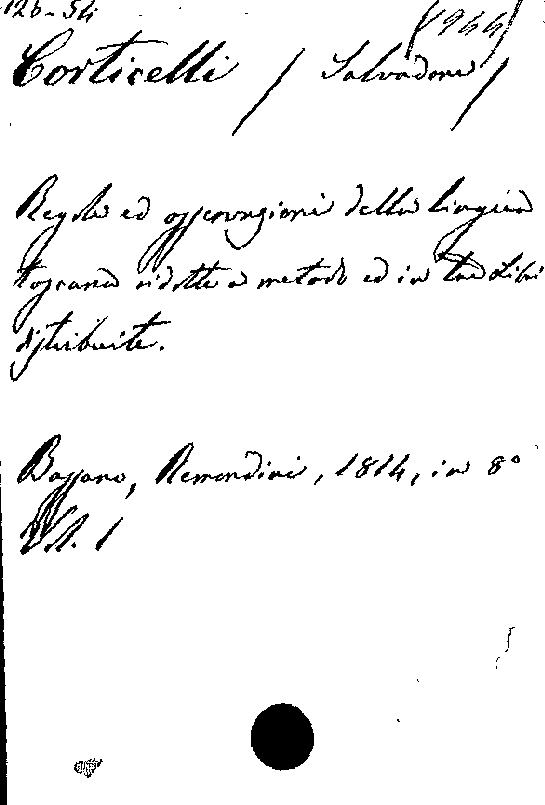 126-54
(1944)
Corticelli / Salvadore /
Regole ed osservazioni della lingua
toscana ridotte a metodo ed in tre Libri
distribuite.
Bassano, Remondini, 1814, in 8°
Vol. 1